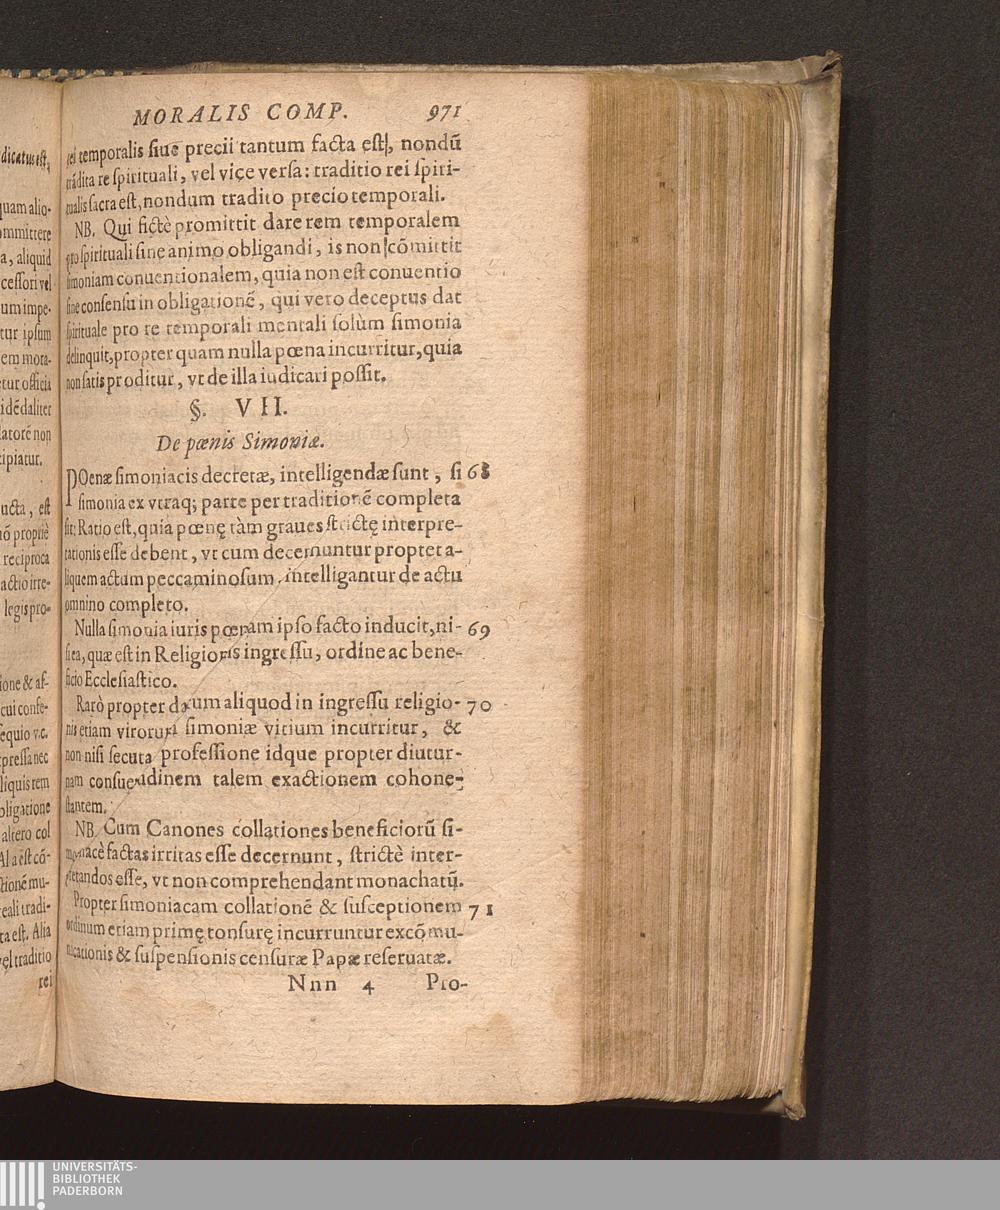 MORALIS COMP. 971
rei temporalis siue precii tantum facta est, nondũ
trádita re spirituali, vel vice versa: traditio rei spiri-
tualis facra est, nondum tradito precio temporali.
NB. Qui fictè promittit dare rem temporalem
pro spirituali sine animo obligandi, is non cõmittit
simoniam conuentionalem, quia non est conuentio
sine consensu in obligationẽ, qui vero deceptus dat
spirituale pro re temporali mentali solùm simonia
delinquit, propter quam nulla pœna incurritur, quia
non satis proditur, vt de illa iudicari possit.
§. VII.
De pœnis Simoniæ.
POenæ simoniacis decretæ, intelligendæ sunt, si 68
simonia ex vtraq; parte per traditionẽ completa
sit: Ratio est, quia pœnę tàm graues strictę interpre-
tationis esse debent, vt cum decernuntur propter a-
liquem actum peccaminosum, intelligantur de actu
omnino completo.
Nulla simonia iuris pœnam ipso facto inducit, ni- 69
si ea, quæ est in Religionis ingressu, ordine ac bene-
ficio Ecclesiastico.
Rarò propter datum aliquod in ingressu religio- 70
nis etiam virorum simoniæ vitium incurritur, &
non nisi secuta professione idque propter diutur-
nam consuetudinem talem exactionem cohone-
stantem.
NB. Cum Canones collationes beneficiorũ si-
moniacè factas irritas esse decernunt, strictè inter-
pretandos esse, vt non comprehendant monachatũ.
Propter simoniacam collationẽ & susceptionem 71
ordinum etiam primę tonsurę incurruntur excõmu-
nicationis & suspensionis censuræ Papæ reseruatæ.
Nnn 4 Pro-
dicatus est,
quam alio-
ommittere
a, aliquid
cessori vel
um impe-
tur ipsum
em mora-
etur officia
idẽ daliter
latorẽ non
cipiatur.
ucta, est
nõ propriè
reciproca
actio irre-
legis pro-
ione & af-
cui conse-
sequio v.c.
pressa nec
liquis rem
obligatione
altero col
Al a est cõ-
ctionẽ mu-
reali tradi-
ta est. Alia
vel traditio
rei
UNIVERSITÄTS-
BIBLIOTHEK
PADERBORN